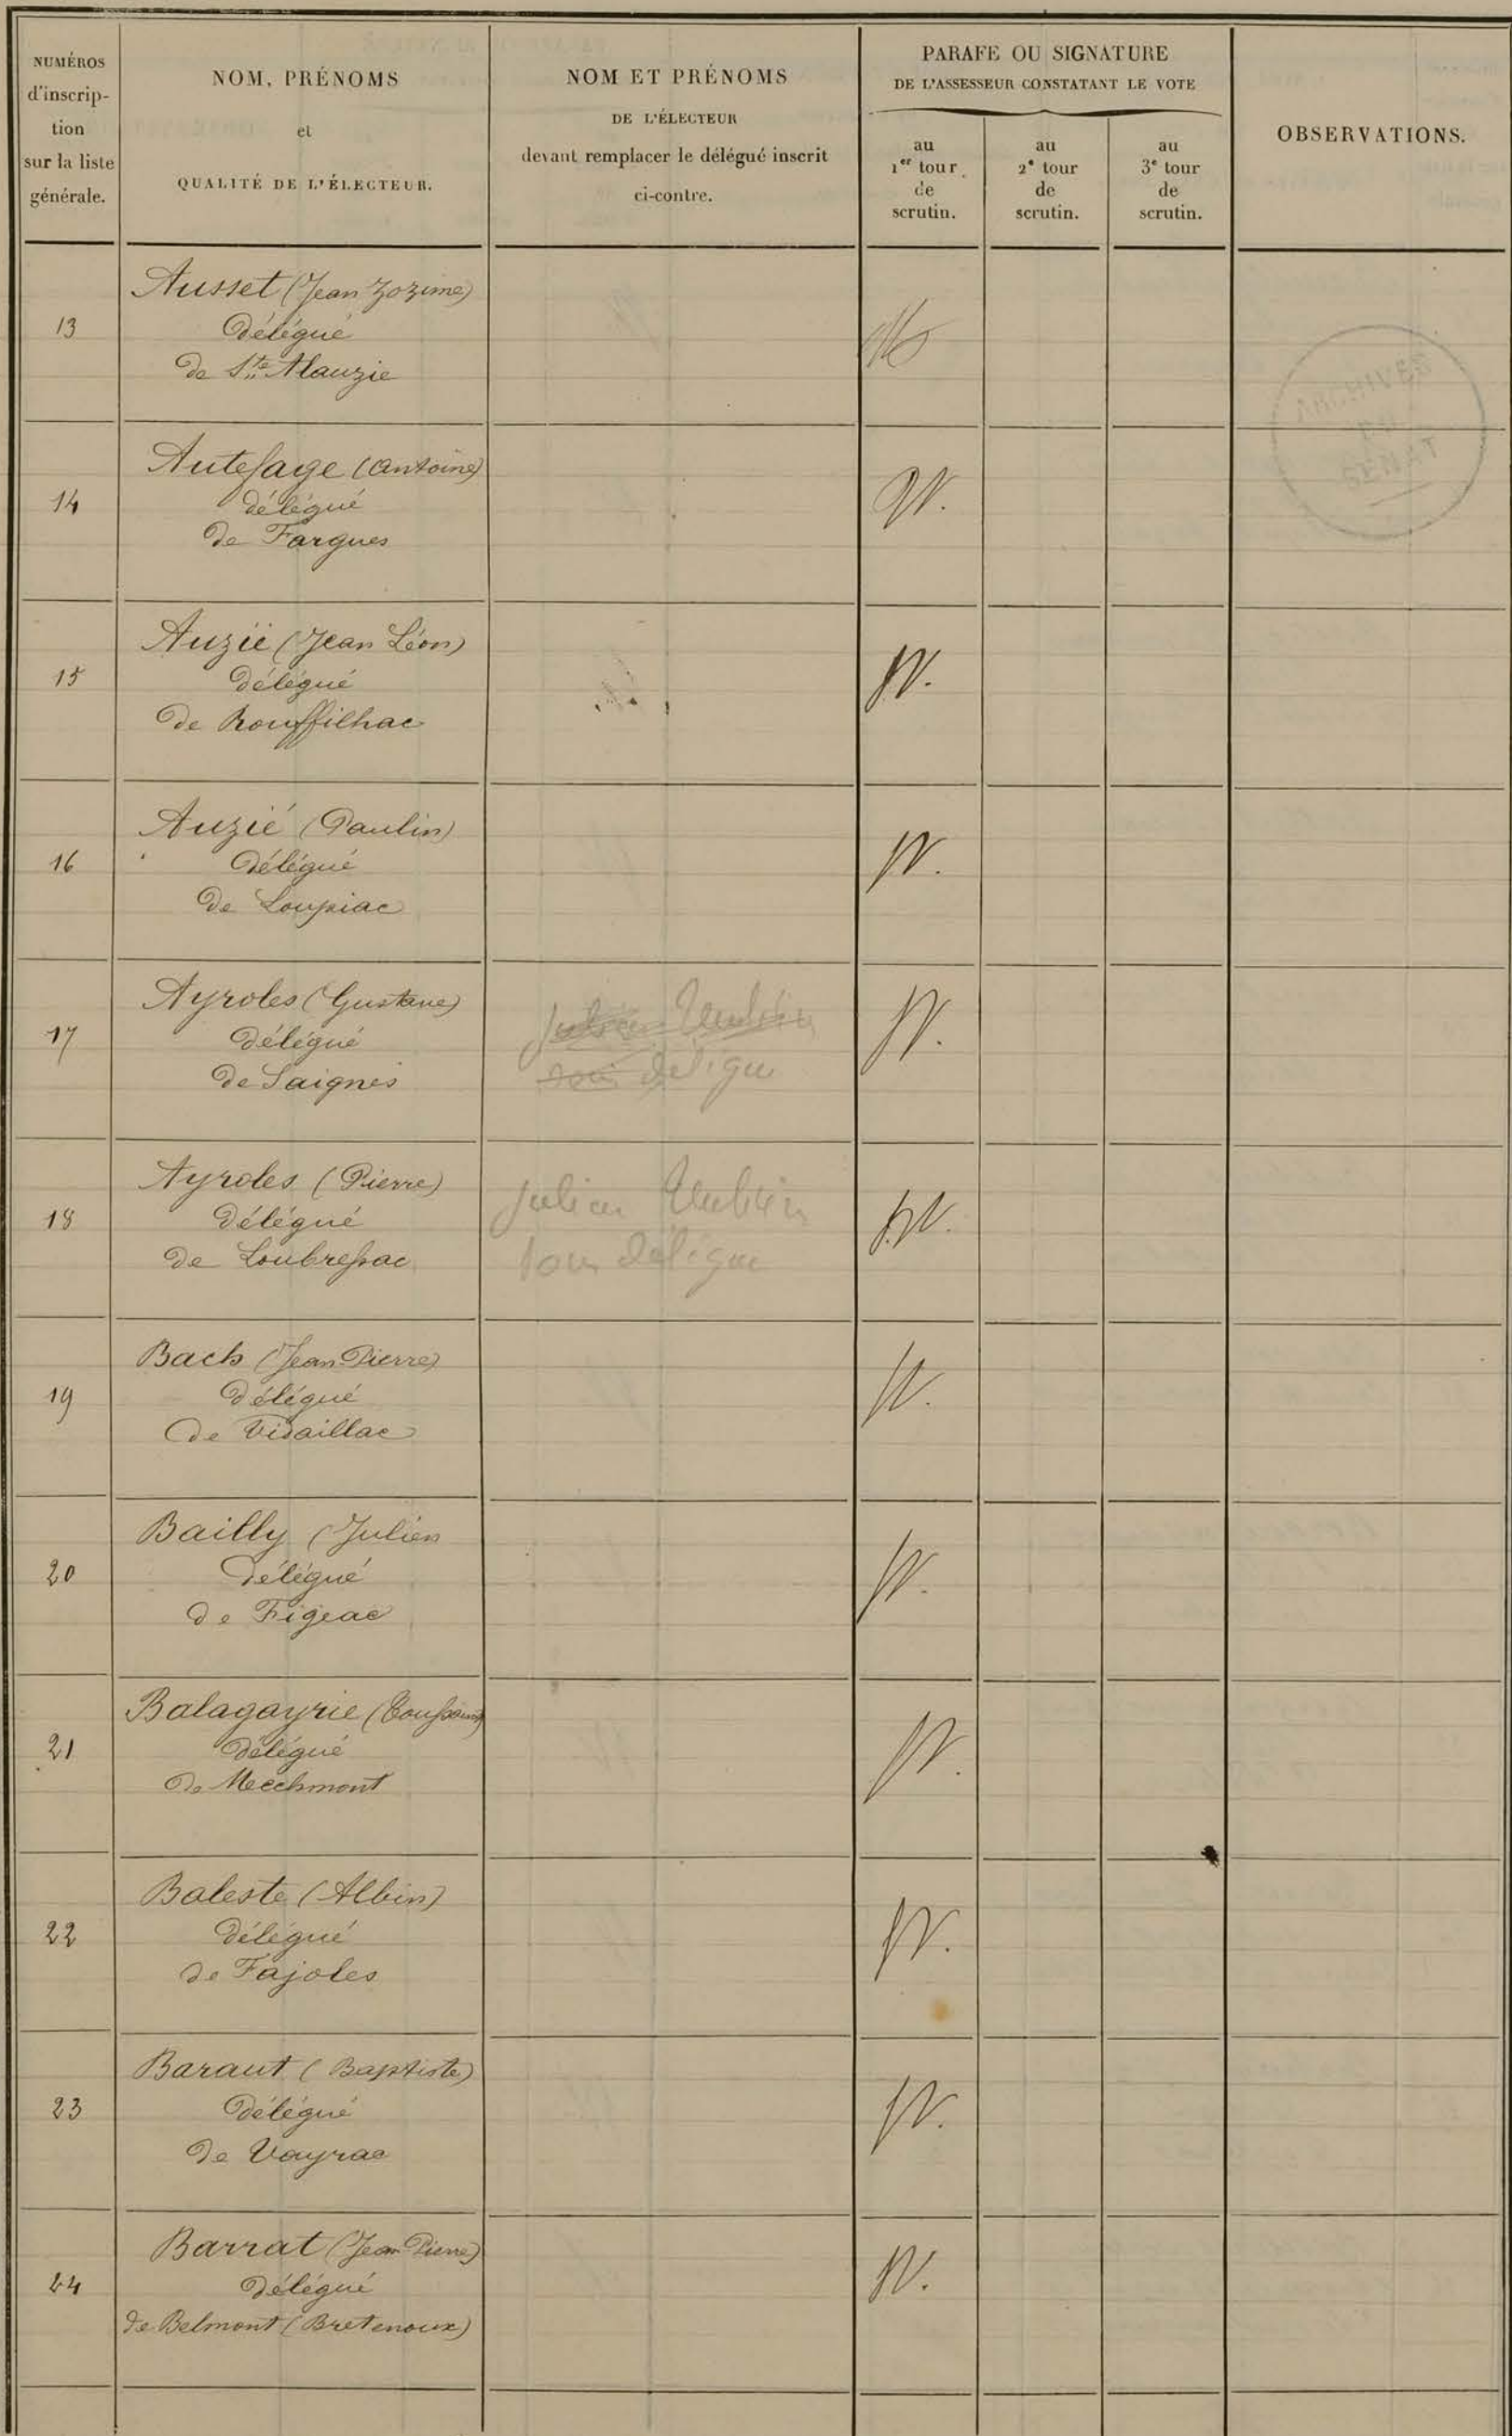 NUMÉROS
d'inscrip-
tion
sur la liste
générale.
NOM, PRÉNOMS
et
QUALITÉ DE L'ÉLECTEUR.
NOM ET PRÉNOMS
DE L'ÉLECTEUR
devant remplacer le délégué inscrit
ci-contre.
PARAFE OU SIGNATURE
DE L'ASSESSEUR CONSTATANT LE VOTE
au
1er tour
de
scrutin.
au
2e tour
de
scrutin.
au
3e tour
de
scrutin.
OBSERVATIONS.
Ausset (Jean Zozime)
13
Délégué
de Ste Alauzie
ARCHIVES
DU
SÉNAT
Autesage (Antoine)
14
délégué
de Fargues
Auzié (Jean Léon)
15
Délégué
de Rouffilhac
Auzié (Paulin)
16
Délégué
de Loupiac
Ayroles (Gustave)
17
Délégué
de Saignes
Ayroles (Pierre)
Julien
18
Délégué
de Loubressac
délégué
Bach (Jean-Pierre)
19
Délégué
de Vidaillac
Bailly (Julien
20
Délégué
de Figeac
Balagayrie (Toussaint)
21
Délégué
de Mechmont
Baleste (Albin)
22
Délégué
de Fajoles
Baraut (Baptiste)
23
Délégué
de Vayrac
Barrat (Jean-Pierre)
24
Délégué
de Belmont (Bretenoux)